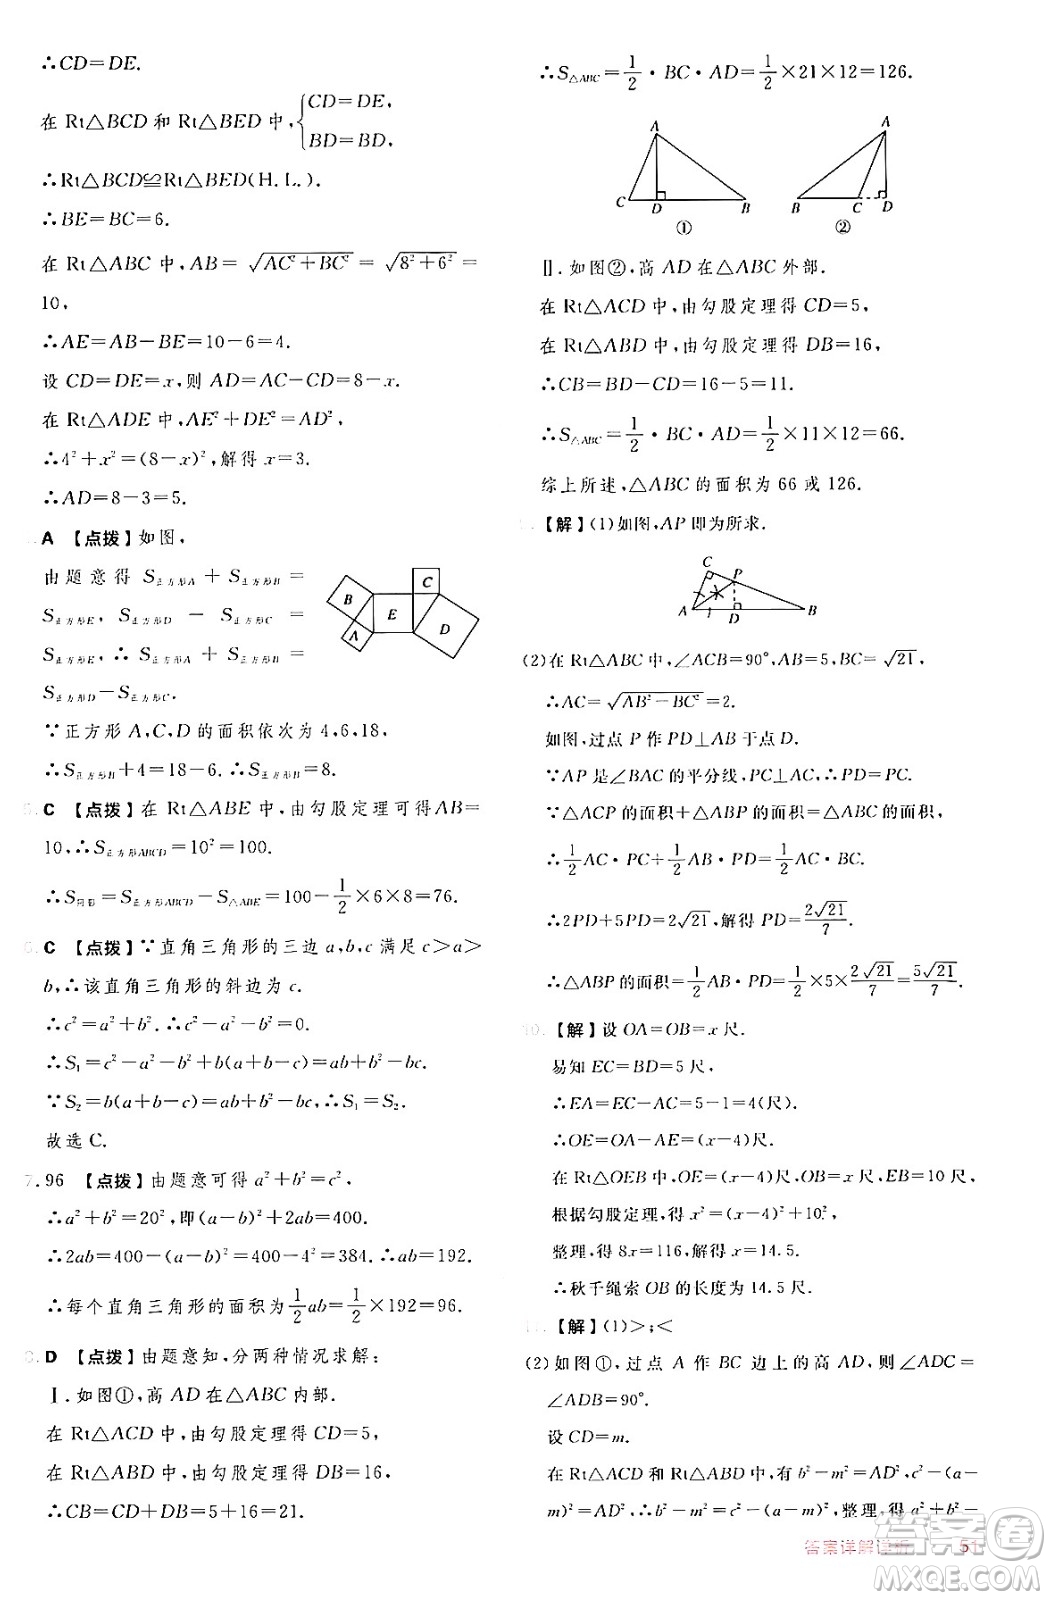 ∴CD=DE.
在 Rt△BCD 和 Rt△BED 中,{CD=DE,
BD=BD,
∴Rt△BCD≌Rt△BED(H.L.).
∴BE=BC=6.
在 Rt△ABC 中,AB=√(AC²+BC²)=√(8²+6²)=
10,
∴AE=AB-BE=10-6=4.
设 CD=DE=x,则 AD=AC-CD=8-x.
在 Rt△ADE 中,AE²+DE²=AD²,
∴4²+x²=(8-x)²,解得 x=3.
∴AD=8-3=5.
A 【点拨】如图,
由题意得 S正方形A + S正方形B =
S正方形E, S正方形D - S正方形C =
S正方形E, ∴ S正方形A + S正方形B =
S正方形D-S正方形C.
∵正方形 A,C,D 的面积依次为 4,6,18,
∴S正方形B+4=18-6.∴S正方形B=8.
B
C
E
A
D
C 【点拨】在 Rt△ABE 中,由勾股定理可得AB=
10,∴S正方形ABCD=10²=100.
∴S阴影=S正方形ABCD-S△ABE=100-1/2×6×8=76.
C 【点拨】∵直角三角形的三边 a,b,c 满足 c>a>
b,∴该直角三角形的斜边为 c.
∴c²=a²+b².∴c²-a²-b²=0.
∴S₁=c²-a²-b²+b(a+b-c)=b(a+b-c).
∵S₂=b(a+b-c)=ab+b²-bc,∴S₁=S₂.
故选 C.
7. 96 【点拨】由题意可得 a²+b²=c²,
∴a²+b²=20²,即(a-b)²+2ab=400.
∴2ab=400-(a-b)²=400-4²=384.∴ab=192.
∴每个直角三角形的面积为1/2ab=1/2×192=96.
D 【点拨】由题意知,分两种情况求解:
Ⅰ.如图①,高 AD 在△ABC 内部.
在 Rt△ACD 中,由勾股定理得 CD=5,
在 Rt△ABD 中,由勾股定理得 DB=16,
∴CB=CD+DB=5+16=21.
∴S△ABC=1/2·BC·AD=1/2×21×12=126.
A
C D B
①
A
B C D
②
Ⅱ.如图②,高 AD 在△ABC 外部.
在 Rt△ACD 中,由勾股定理得 CD=5,
在 Rt△ABD 中,由勾股定理得 DB=16,
∴CB=BD-CD=16-5=11.
∴S△ABC=1/2·BC·AD=1/2×11×12=66.
综上所述,△ABC 的面积为 66 或 126.
【解】(1)如图,AP 即为所求.
C
P
A D B
(2)在 Rt△ABC 中,∠ACB=90°,AB=5,BC=√21,
∴AC=√(AB²-BC²)=2.
如图,过点 P 作 PD⊥AB 于点 D.
∵AP 是∠BAC 的平分线,PC⊥AC,∴PD=PC.
∵△ACP 的面积+△ABP 的面积=△ABC 的面积,
∴1/2AC·PC+1/2AB·PD=1/2AC·BC.
∴2PD+5PD=2√21,解得 PD=2√21/7.
∴△ABP 的面积=1/2AB·PD=1/2×5×2√21/7=5√21/7.
10. 【解】设 OA=OB=x 尺.
易知 EC=BD=5 尺,
∴EA=EC-AC=5-1=4(尺).
∴OE=OA-AE=(x-4)尺.
在 Rt△OEB 中,OE=(x-4)尺,OB=x 尺,EB=10 尺,
根据勾股定理,得 x²=(x-4)²+10²,
整理,得 8x=116,解得 x=14.5.
∴秋千绳索 OB 的长度为 14.5 尺.
【解】(1)>;<
(2)如图①,过点 A 作 BC 边上的高 AD,则∠ADC=
∠ADB=90°.
设 CD=m.
在 Rt△ACD 和 Rt△ADB 中,有 b²-m²=AD²,c²-(a-
m)²=AD²,∴b²-m²=c²-(a-m)²,整理,得 a²+b²=
答案详解详析 51
答案圈
MXQE.COM